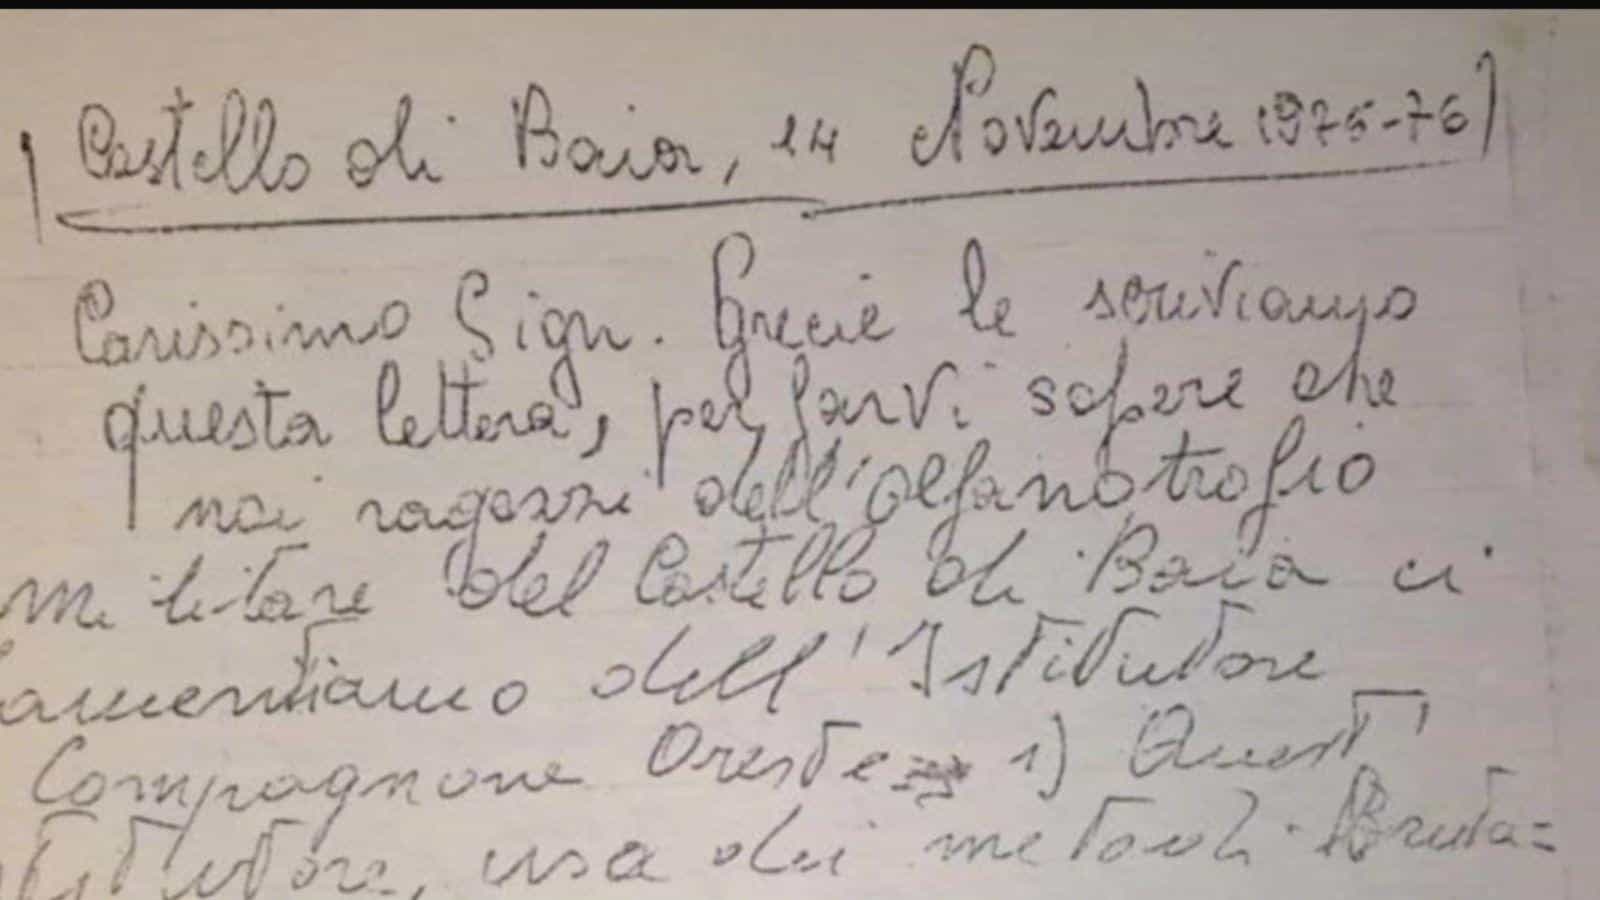 Castello di Baia, 14 Novembre 1975-76
Carissimo Sign. Grecie le scriviamo
questa lettera, per farvi sapere che
noi ragazzi dell'olfanotrofio
militare del Castello di Baia ci
lamentiamo dell'Istitutore
Compagnone Oreste 1) Quest'
istitutore, usa dei metodi Bruta=